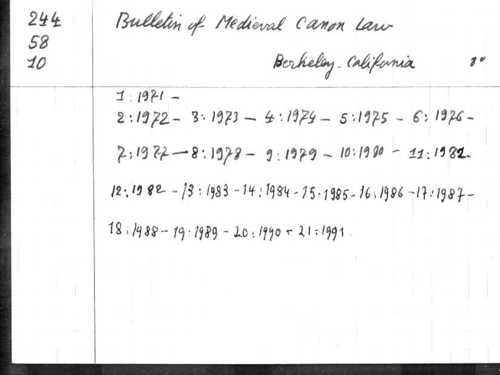 244 Bulletin of Medieval Canon Law
58
10 Berkeley - California 8°
1:1971 -
2:1972 - 3:1973 - 4:1974 - 5:1975 - 6:1976 -
7:1977 - 8:1978 - 9:1979 - 10:1980 - 11:1981
12:1982 - 13:1983 - 14:1984 - 15:1985 - 16:1986 - 17:1987 -
18:1988 - 19:1989 - 20:1990 - 21:1991